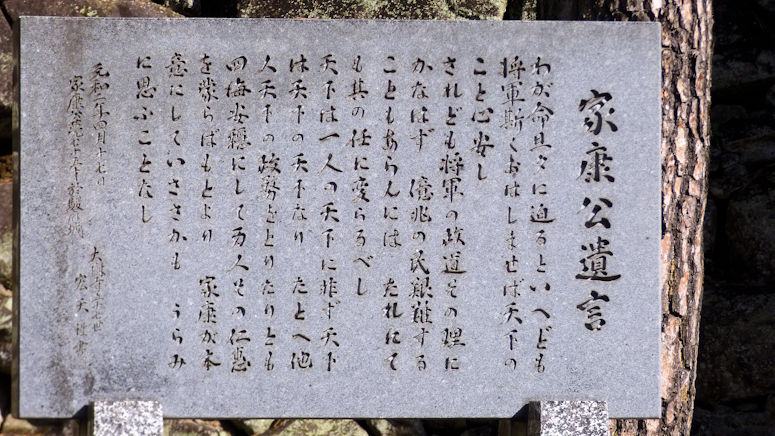 家康公遺言
わが命旦夕に迫るといへども
将軍斯くおはしませば天下の
こと心安し
されども将軍の政道その理に
かなはず 億兆の民艱難する
こともあらんには たれにて
も其の任に変らるべし
天下は一人の天下に非ず天下
は天下の天下なり たとへ他
人天下の政務をとりたりとも
四海安穏にして万人その仁恵
を蒙らばもとより 家康が本
意にしていささかも うらみ
に思ふことなし
元和二年四月十七日
家康公薨七十五才於駿府城